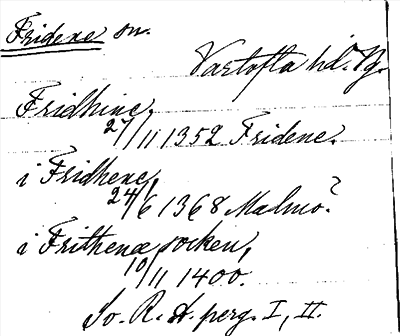 Fridene sn.
Vartofta hd. Vg.
Fridhine,
27/11 1352 Fridene.
i Fridhene,
24/6 1368 Malmö?
i Frithenæ socken,
10/11 1400.
Sv. R. A. perg. I, II.